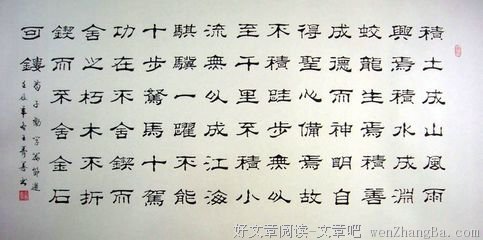 積土成山風雨
興焉積水成淵
蛟龍生焉積善
成德而神明自
得聖心備焉故
不積跬步無以
至千里不積小
流無以成江海
騏驥一躍不能
十步駑馬十駕
功在不舍鍥而
舍之朽木不折
鍥而不舍金石
可鏤
荀子勸學篇節選
好文章阅读-文章吧 wenZhangBa.com